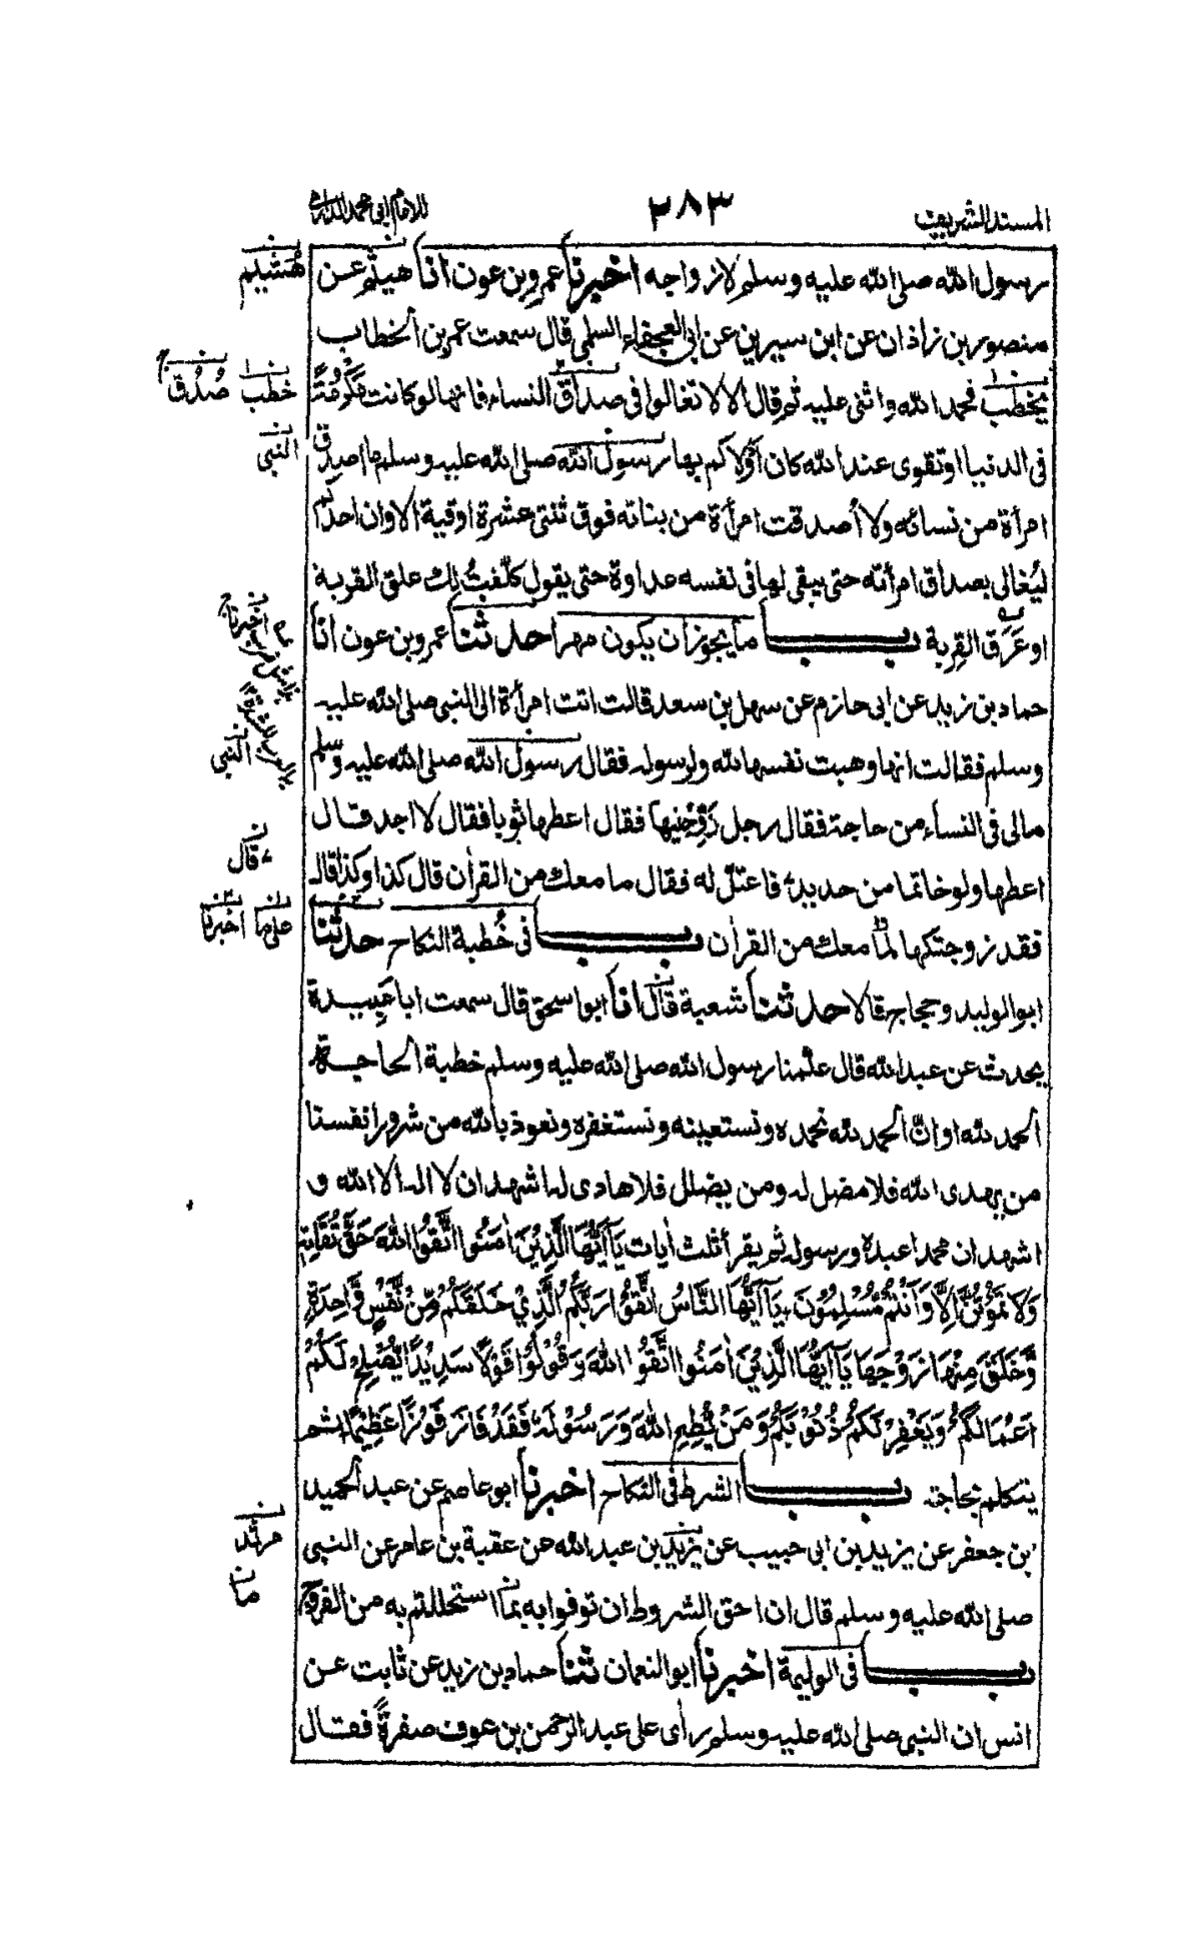 المسند الشريف
٢٨٣
للامام ابى محمد الدارمى
رسول الله صلى الله عليه وسلم لازواجه اخبرنا عمرو بن عون انا هيثم عن
هُشَيْم
منصور بن زاذان عن ابن سيرين عن ابى العجفاء السلمى قال سمعت عمر بن الخطاب
يخطب فحمد الله واثنى عليه ثم قال الا لا تغالوا فى صداق النساء فانها لو كانت مَكْرُمَةً
خطب
صُدُق
فى الدنيا او تقوى عند الله كان اَوْلاكم بها رسول الله صلى الله عليه وسلم ما اصدق
النبى
امرأة من نسائه ولا اُصدقت امرأة من بناته فوق ثنتى عشرة اوقية الا وان احدكم
ليُغالى بصداق امرأته حتى يبقى لها فى نفسه عداوة حتى يقول كلّفتُ لك علق القربة
او عَرَق القِربة باب ما يجوز ان يكون مهرا حدثنا عمرو بن عون انا
اخبرنا
حماد بن زيد عن ابى حازم عن سهل بن سعد قالت اتت امرأة الى النبى صلى الله عليه
وسلم فقالت انها وهبت نفسها لله ولرسوله فقال رسول الله صلى الله عليه وسلم
النبى
مالى فى النساء من حاجة فقال رجل زَوِّجْنِيها فقال اعطها ثوبا فقال لا اجد قال
اعطها ولو خاتما من حديد فاعتلّ له فقال ما معك من القراٰن قال كذا وكذا قال
قال
فقد زوجتكها لما معك من القراٰن باب فى خُطبة النكاح حدثنا
على ما
اخبرنا
ابو الوليد وحجاج قالا حدثنا شعبة قال انا ابو اسحق قال سمعت ابا عُبيدة
يحدث عن عبد الله قال علّمنا رسول الله صلى الله عليه وسلم خطبة الحاجة
الحمد لله او انّ الحمد لله نحمده ونستعينه ونستغفره ونعوذ بالله من شرور انفسنا
من يهدى الله فلا مضل له ومن يضلل فلا هادى له اشهد ان لا اله الا الله و
اشهد ان محمدا عبده ورسوله ثم يقرأ ثلث اٰيات يَآ اَيُّهَا الَّذِيْنَ اٰمَنُوا اتَّقُوا اللهَ حَقَّ تُقَاتِهٖ
وَلَا تَمُوْتُنَّ اِلَّا وَاَنْتُمْ مُّسْلِمُوْنَ يَآ اَيُّهَا النَّاسُ اتَّقُوْا رَبَّكُمُ الَّذِيْ خَلَقَكُمْ مِّنْ نَّفْسٍ وَّاحِدَةٍ
وَّخَلَقَ مِنْهَا زَوْجَهَا يَآ اَيُّهَا الَّذِيْنَ اٰمَنُوا اتَّقُوا اللهَ وَقُوْلُوْا قَوْلًا سَدِيْدًا يُّصْلِحْ لَكُمْ
اَعْمَالَكُمْ وَيَغْفِرْ لَكُمْ ذُنُوْبَكُمْ وَمَنْ يُّطِعِ اللهَ وَرَسُوْلَهٗ فَقَدْ فَازَ فَوْزًا عَظِيْمًا ثم
يتكلم بحاجته باب الشرط فى النكاح اخبرنا ابو عاصم عن عبد الحميد
بن جعفر عن يزيد بن ابى حبيب عن يزيد بن عبد الله عن عقبة بن عامر عن النبى
مرثد
صلى الله عليه وسلم قال ان احق الشروط ان توفوا به بما استحللتم به من الفروج
ما
باب فى الوليمة اخبرنا ابو النعمان ثنا حماد بن زيد عن ثابت عن
انس ان النبى صلى الله عليه وسلم رأى على عبد الرحمن بن عوف صفرةً فقال